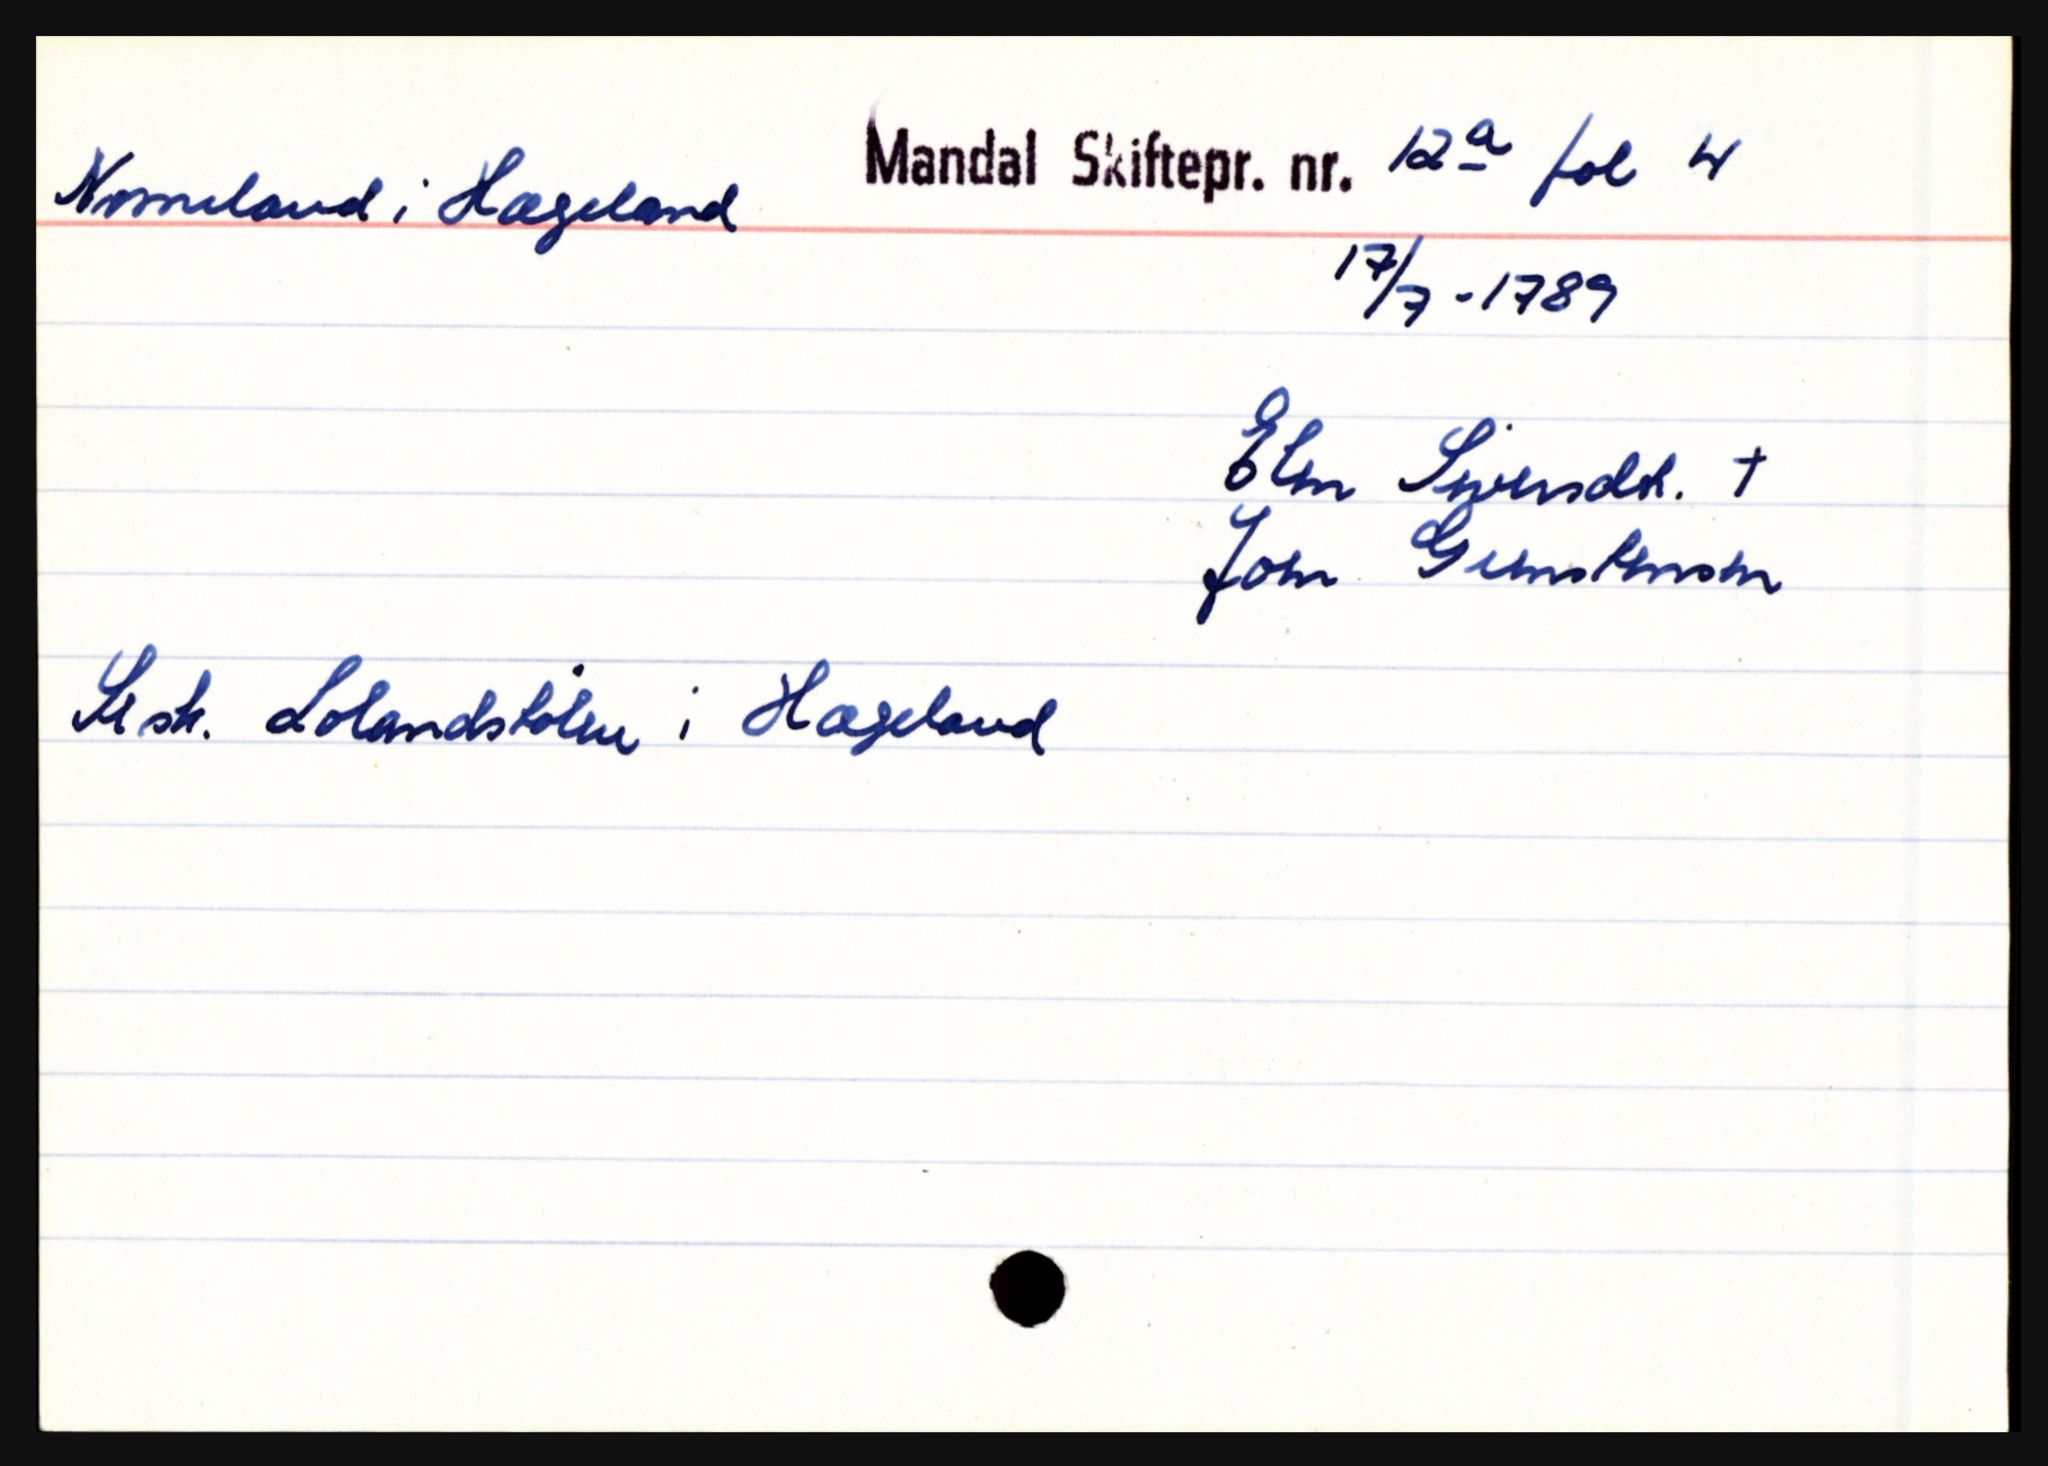 Nomeland i Hægeland Mandal Skiftepr. nr. 12a fol 4
17/7 - 1789
Elen Siversdtr. †
Joen Gunstensen
Se sk. Lolandstølen i Hægeland